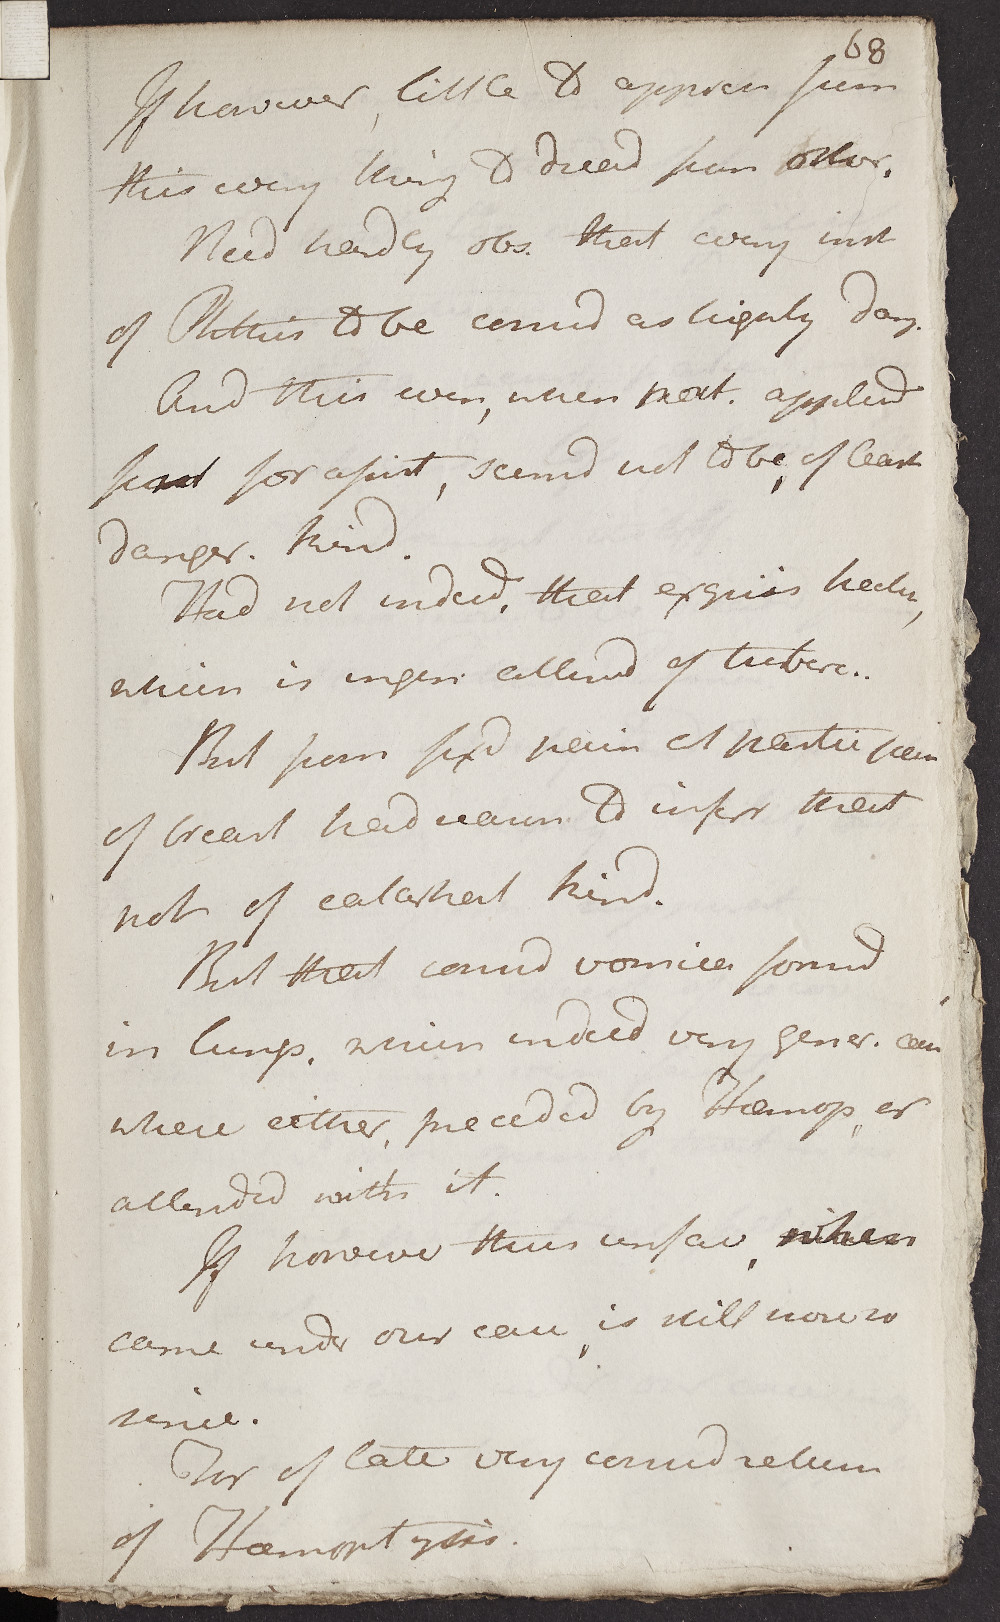 68
If however, little to appreh from
this every thing to dread from other.
Need hardly obs. that every inst
of Phthis to be consid as highly dang.
And this even, when pat. applied
for assist, seemd not to be, of least
danger. kind.
Had not indeed, that exquis hectic,
which is in gen. attend of tuberc..
But from fixd pain at particu
of breast had reason to infer that
not of catarrhal kind.
But that consid vomica formd
in lungs. which indeed very gener. case
where either, preceded by Hæmop, or
attended with it.
If however thus unfav, when
came under our care, is still more so
since.
For of late very consid return
of Hæmoptysis.